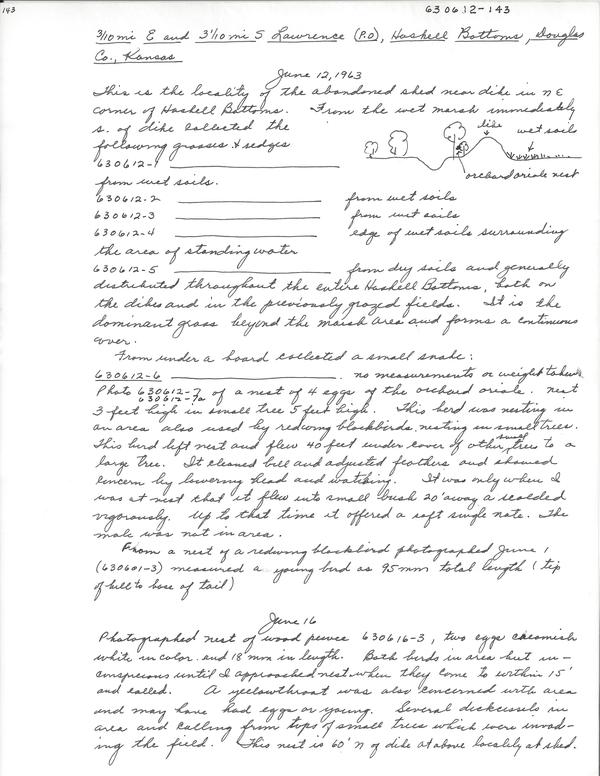 143
630612-143
3/10 mi E and 3 1/10 mi S Lawrence (P.O), Haskell Bottoms, Douglas
Co., Kansas
June 12, 1963
This is the locality of the abandoned shed near dike in NE
corner of Haskell Bottoms. From the wet marsh immediately
s. of dike collected the
following grasses & sedges
dike
wet soils
orchard oriole nest
630612-1
from wet soils.
630612-2 from wet soils
630612-3 from wet soils
630612-4 edge of wet soils surrounding
the area of standing water
630612-5 from dry soils and generally
distributed throughout the entire Haskell Bottoms, both on
the dikes and in the previously grazed fields. It is the
dominant grass beyond the marsh area and forms a continuous
cover.
From under a board collected a small snake:
630612-6 no measurements or weight taken
Photo 630612-7 of a nest of 4 eggs of the orchard oriole. nest
630612-7a
3 feet high in small tree 5 feet high. This bird was nesting in
an area also used by redwing blackbirds, nesting in small trees.
This bird left nest and flew 40 feet under cover of other small trees to a
large tree. It cleaned bill and adjusted feathers and showed
concern by lowering head and watching. It was only when I
was at nest that it flew into small bush 20' away & scolded
vigorously. Up to that time it offered a soft single note. The
male was not in area.
From a nest of a redwing blackbird photographed June 1
(630601-3) measured a young bird as 95mm total length (tip
of bill to base of tail)
June 16
Photographed nest of wood pewee 630616-3, two eggs creamish
white in color and 18 mm in length. Both birds in area but in-
conspicous until I approached nest when they come to within 15'
and called. A yellowthroat was also concerned with area
and may have had eggs or young. Several dickcissels in
area and calling from tops of small trees which were invad-
ing the field. This nest is 60' N of dike at above locality at shed.